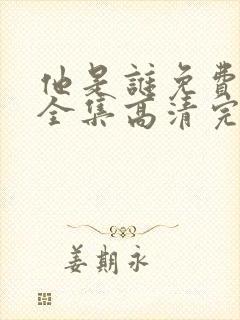 他是谜免費
全集高清完
姜期永